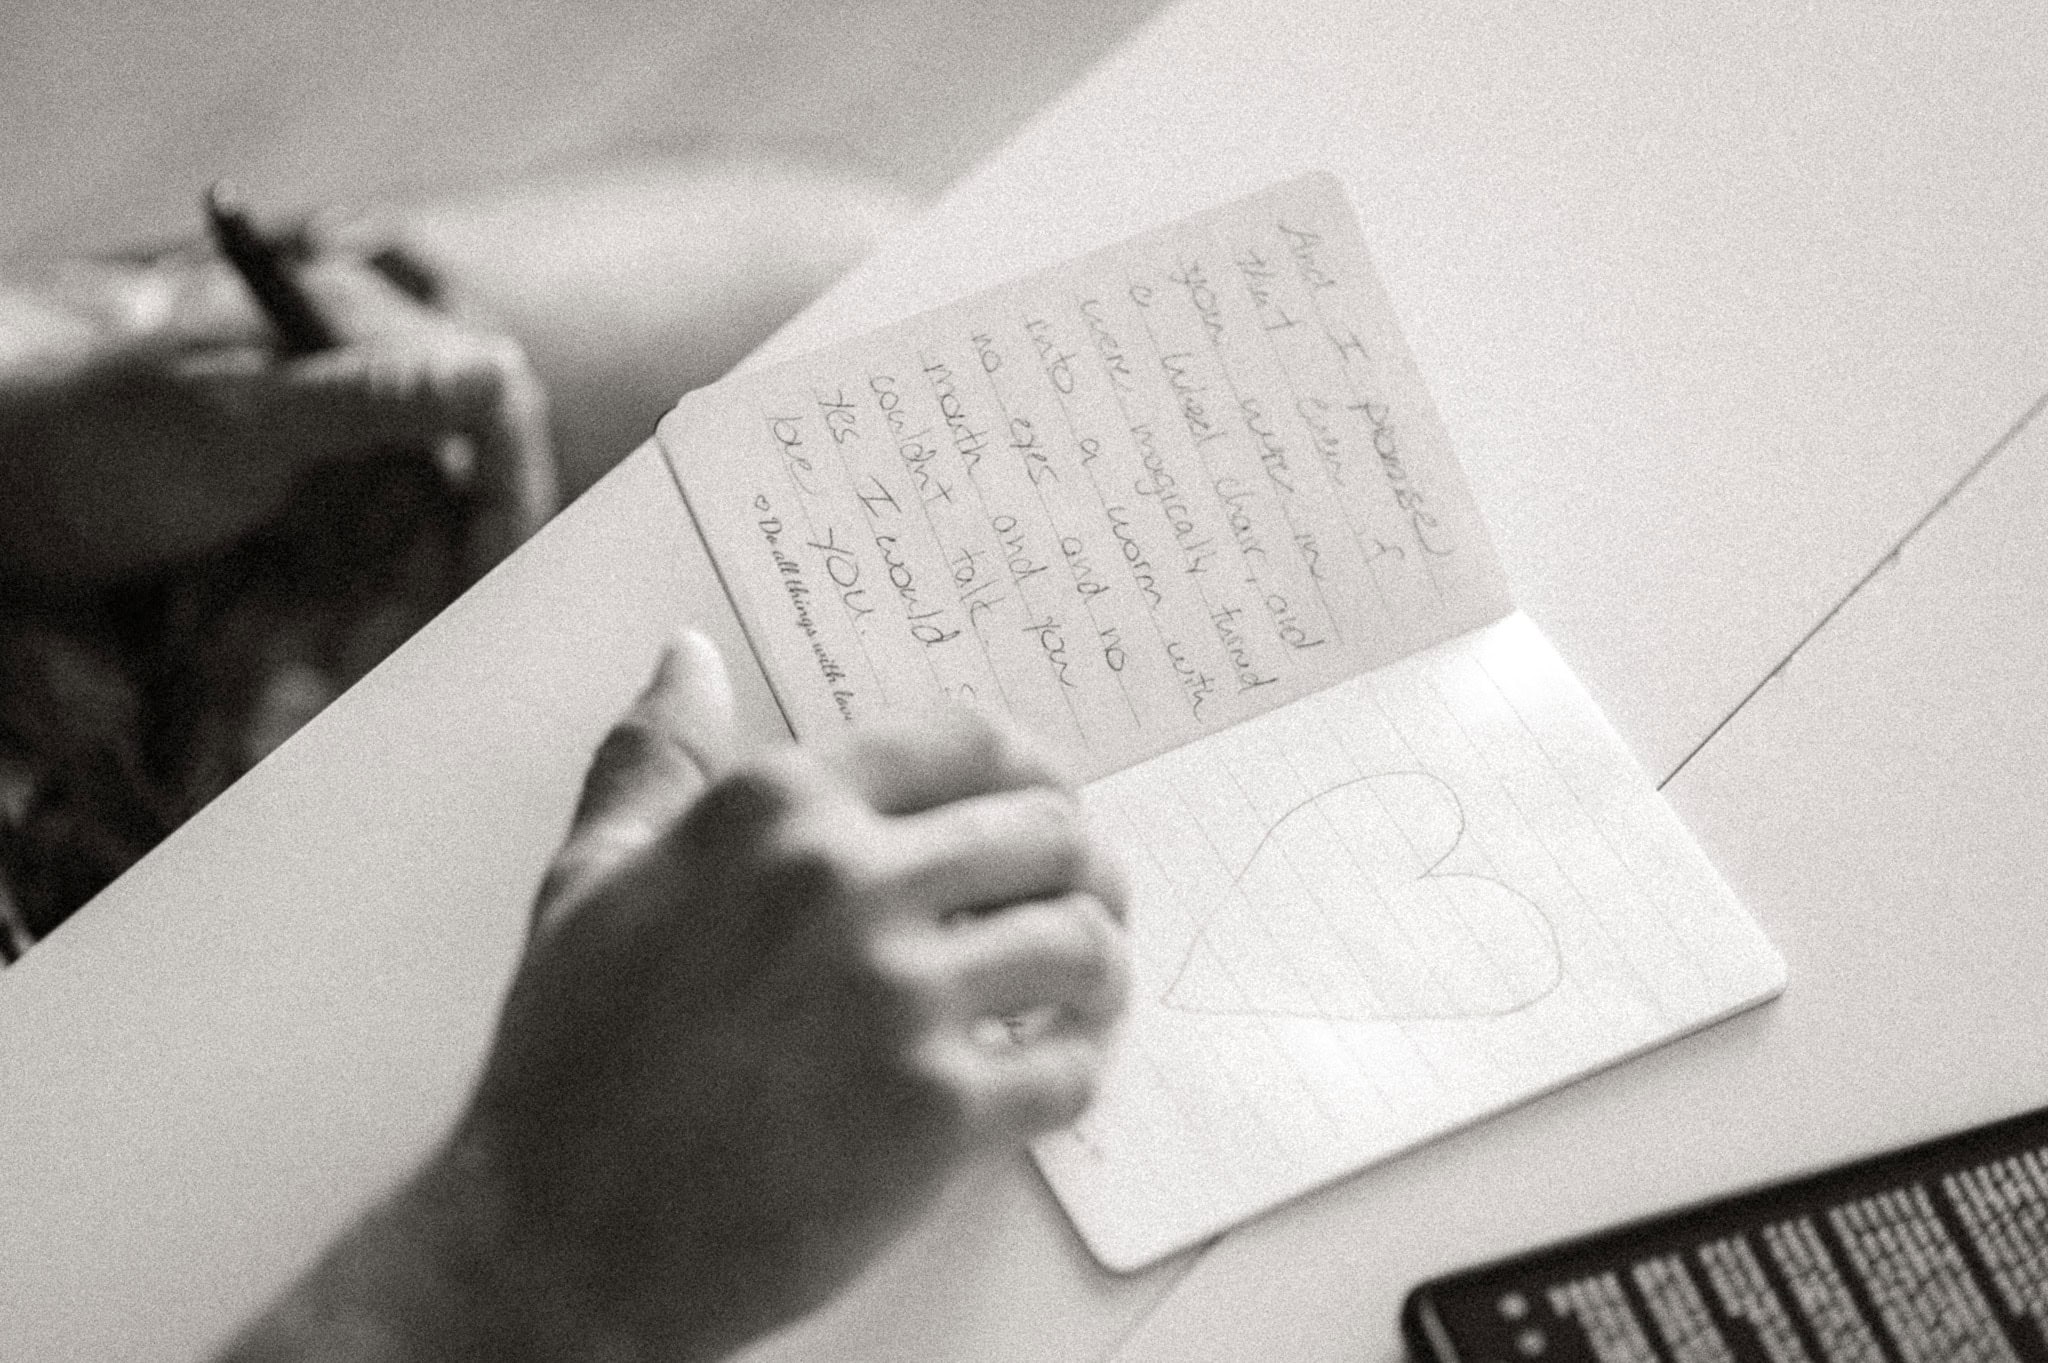 And I promise
that even if
your were in
a weel chair, and
were magically turned
into a worm with
no eyes and no
mouth and you
couldnt talk.
Yes I would s
love you.
♡ Do all things with love